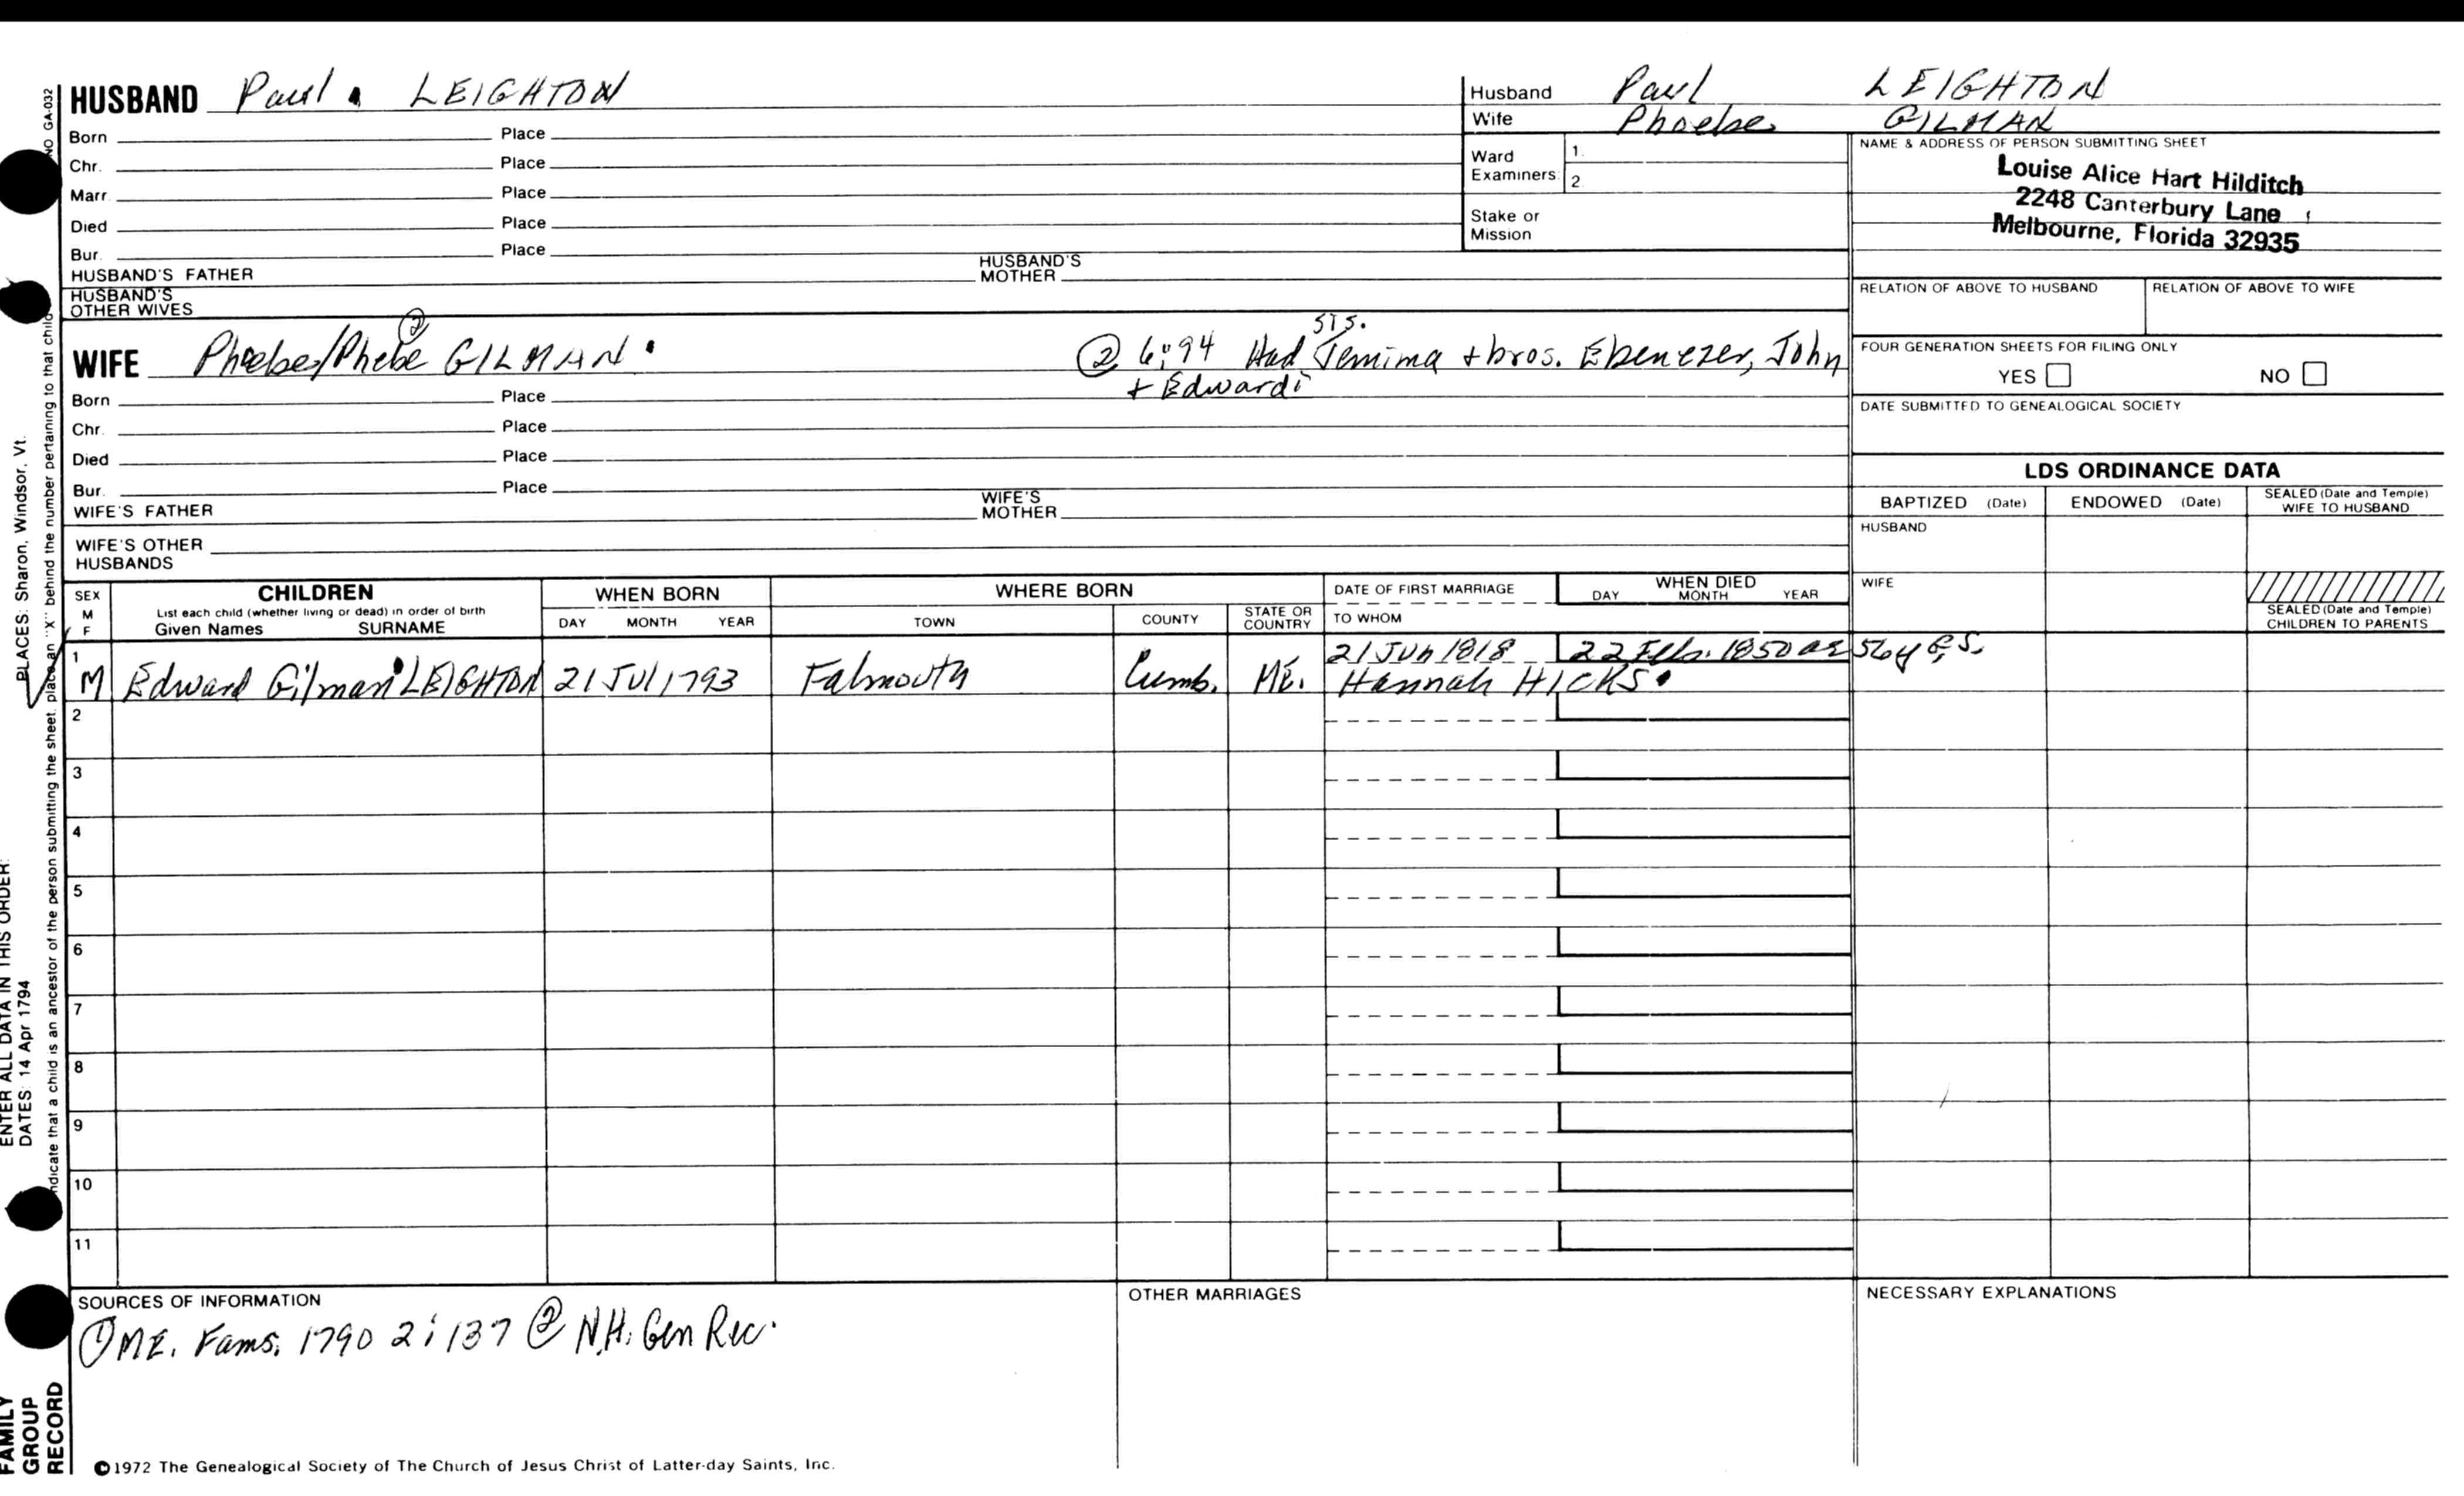 HUSBAND Paul LEIGHTON
Born Place
Chr. Place
Marr. Place
Died Place
Bur. Place
HUSBAND'S FATHER HUSBAND'S MOTHER
HUSBAND'S OTHER WIVES
Husband Paul LEIGHTON
Wife Phoebe GILMAN
Ward Examiners 1.
2
Stake or Mission
NAME & ADDRESS OF PERSON SUBMITTING SHEET
Louise Alice Hart Hilditch
2248 Canterbury Lane
Melbourne, Florida 32935
RELATION OF ABOVE TO HUSBAND RELATION OF ABOVE TO WIFE
FOUR GENERATION SHEETS FOR FILING ONLY
YES NO
DATE SUBMITTED TO GENEALOGICAL SOCIETY
② sis.
WIFE Phoebe/Phebe GILMAN ② 6:94 Had Jemima + bros. Ebenezer, John
+ Edward
Born Place
Chr. Place
Died Place
Bur. Place
WIFE'S FATHER WIFE'S MOTHER
WIFE'S OTHER HUSBANDS
LDS ORDINANCE DATA
BAPTIZED (Date) ENDOWED (Date) SEALED (Date and Temple) WIFE TO HUSBAND
HUSBAND
WIFE
SEALED (Date and Temple) CHILDREN TO PARENTS
SEX M F CHILDREN WHEN BORN WHERE BORN DATE OF FIRST MARRIAGE WHEN DIED
List each child (whether living or dead) in order of birth
Given Names SURNAME DAY MONTH YEAR TOWN COUNTY STATE OR COUNTRY TO WHOM DAY MONTH YEAR
1 21 Jun 1818 22 Feb. 1850 ae 56y G.S.
M Edward Gilman LEIGHTON 21 Jul 1793 Falmouth Cumb. ME. Hannah HICKS
2
3
4
5
6
7
8
9
10
11
SOURCES OF INFORMATION OTHER MARRIAGES NECESSARY EXPLANATIONS
① ME. Fams. 1790 2:137 ② N.H. Gen Rec.
©1972 The Genealogical Society of The Church of Jesus Christ of Latter-day Saints, Inc.
FAMILY GROUP RECORD
ENTER ALL DATA IN THIS ORDER:
DATES: 14 Apr 1794
PLACES: Sharon, Windsor, Vt.
indicate that a child is an ancestor of the person submitting the sheet, place an "X" behind the number pertaining to that child
NO GA-032